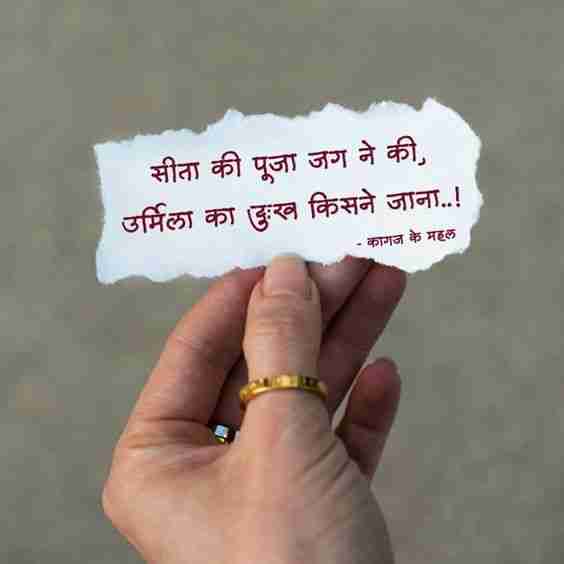 सीता की पूजा जग ने की,
उर्मिला का दुःख किसने जाना..!
- कागज के महल